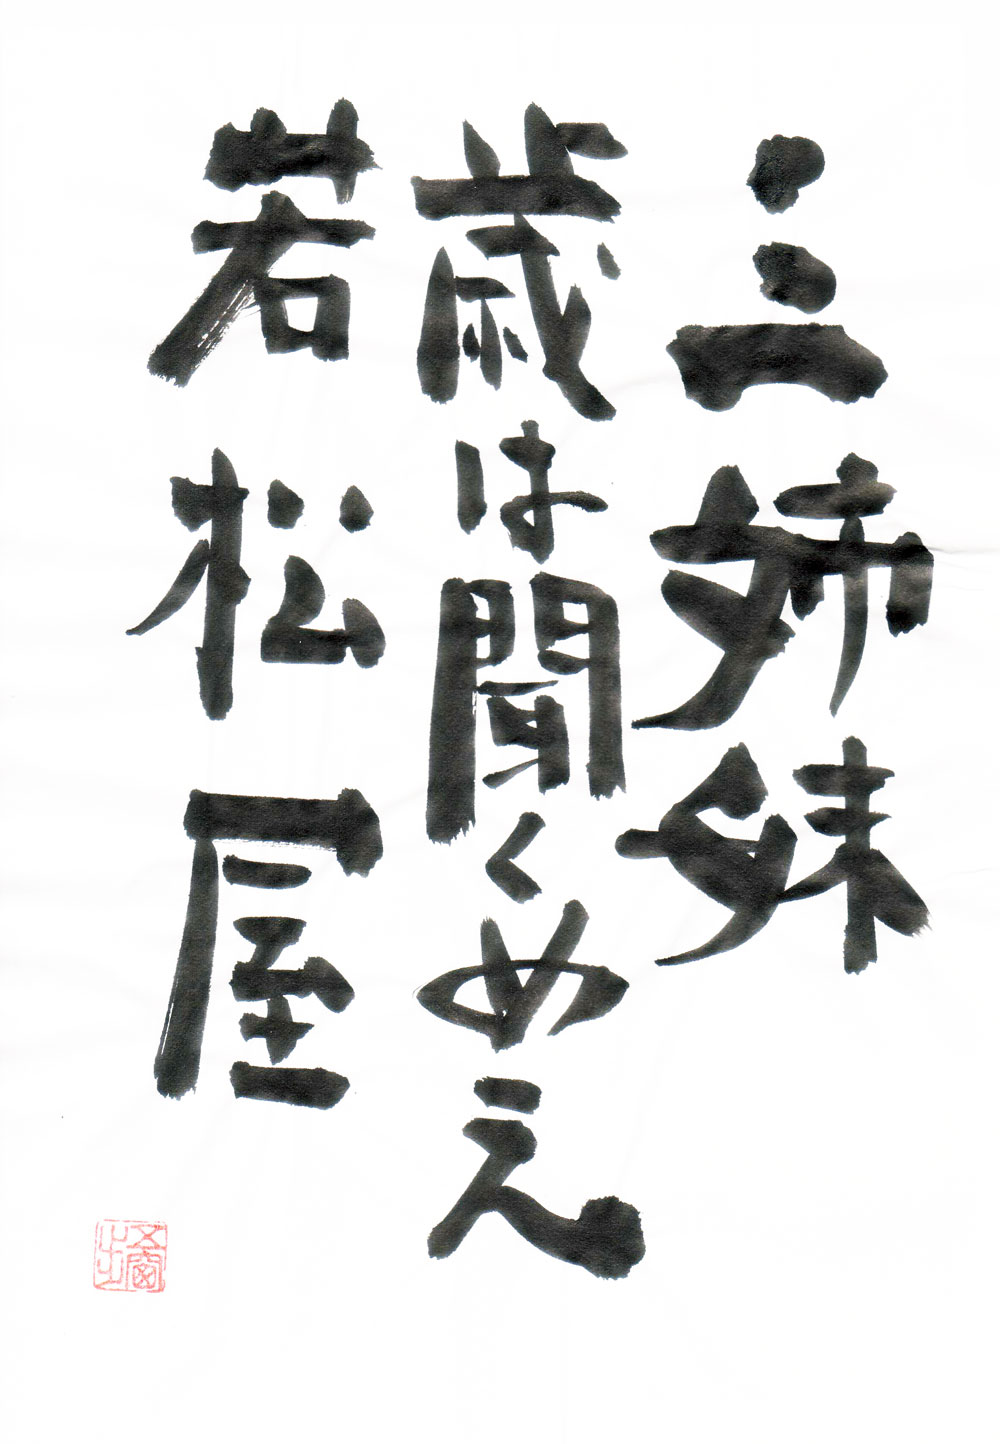 三姉妹
歳は聞くめえ
若松屋